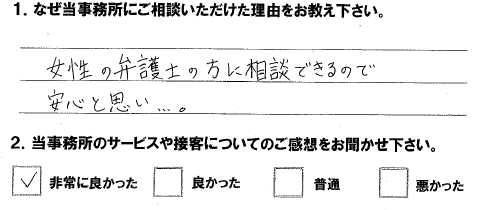 1. なぜ当事務所にご相談いただけた理由をお教え下さい。
女性の弁護士の方に相談できるので
安心と思い…。
2. 当事務所のサービスや接客についてのご感想をお聞かせ下さい。
✓ 非常に良かった 良かった 普通 悪かった